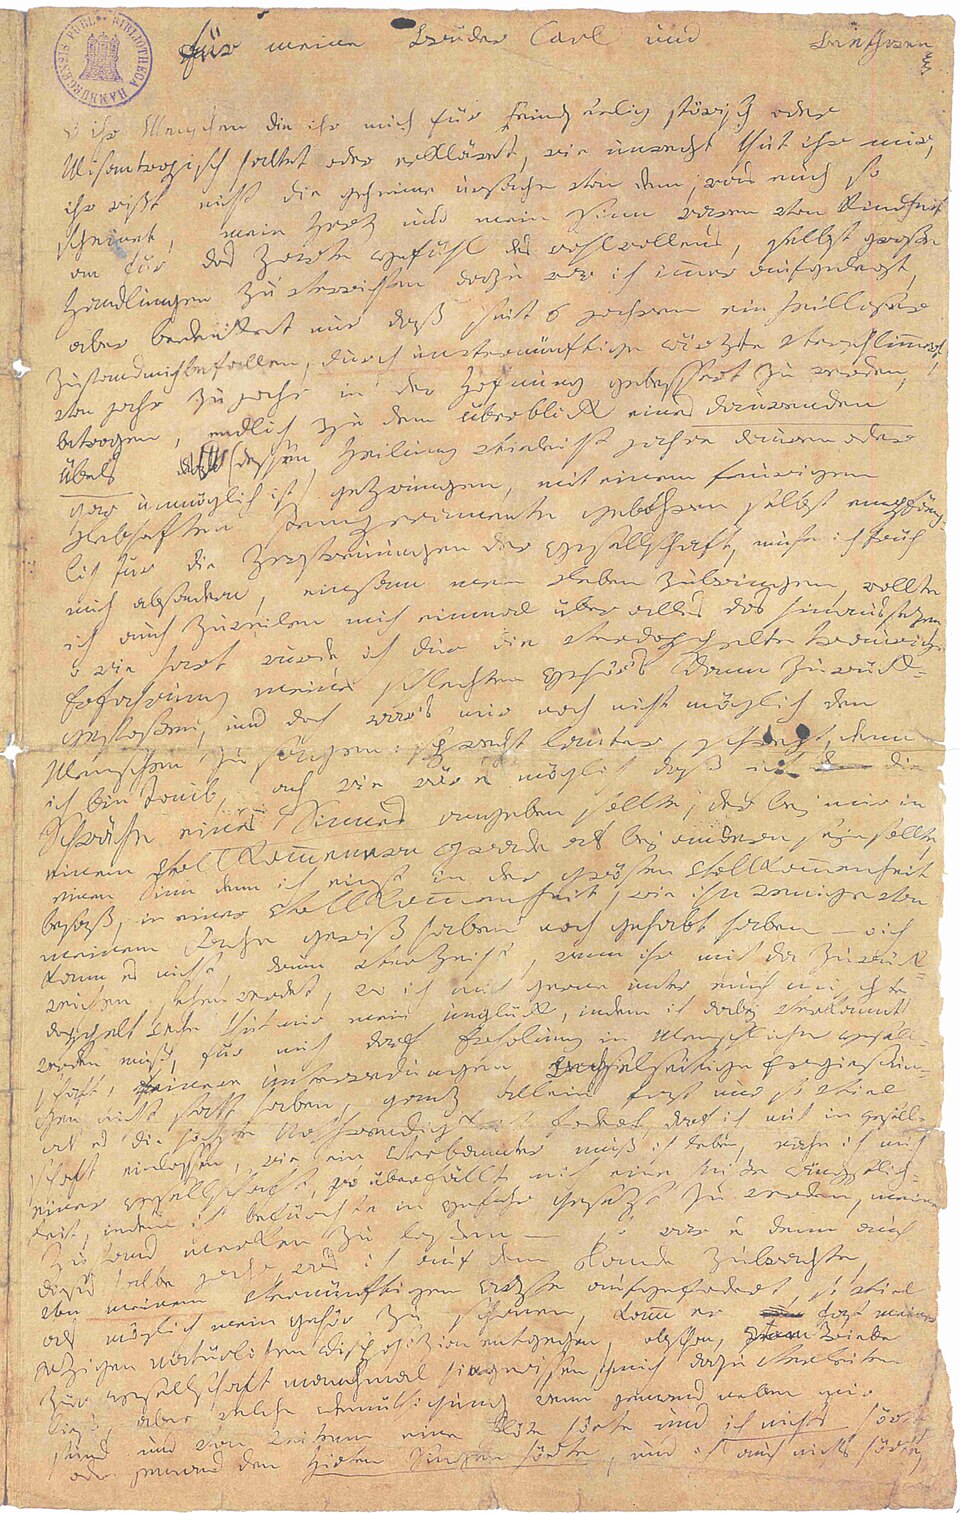 BIBLIOTHECA HAMBURGENSIS PUBL.
für meine Brüder Carl und Beethowen
o ihr Menschen die ihr mich für Feindseelig störisch oder
Misantropisch haltet oder erkläret, wie unrecht thut ihr mir,
ihr wißt nicht die geheime ursache von dem, was euch so
scheinet, mein Herz und mein Sinn waren von Kindheit
an für das Zarte Gefühl des wohlwollens, selbst große
Handlungen zu verrichten dazu war ich immer aufgelegt,
aber bedenket nur daß seit 6 jahren ein heilloser
Zustand mich befallen, durch unvernünftige ärzte verschlimmert,
von jahr zu jahr in der Hofnung gebessert zu werden,
betrogen, endlich zu dem überblick eines daurenden
Übels (dessen Heilung vieleicht jahre dauren oder
gar unmöglich ist) gezwungen, mit einem feurigen
Lebhaften Temperamente gebohren selbst empfäng-
lich für die Zerstreuungen der Gesellschaft, muste ich früh
mich absondern, einsam mein Leben zubringen, wollte
ich auch zuweilen mich einmal über alles das hinaussezen,
o wie hart wurde ich dur die verdoppelte traurige
Erfahrung meines schlechten Gehör's dann zurück-
gestoßen, und doch war's mir noch nicht möglich den
Menschen zu sagen: sprecht lauter, schreyt, denn
ich bin Taub, ach wie wär es möglich daß ich die
Schwäche eines Sinnes angeben sollte, der bey mir in
einem Vollkommenern Grade als bey andern seyn sollte,
einen Sinn denn ich einst in der grösten Vollkommenheit
besaß, in einer Vollkommenheit, wie ihn wenige von
meinem Fache gewiß haben noch gehabt haben – o ich
kann es nicht, drum verzeiht, wenn ihr mich da zurück-
weichen sehen werdet, wo ich mich gerne unter euch mischte
doppelt wehe thut mir mein unglück, indem ich dabey verkannt
werden muß, für mich darf Erholung in Menschlicher gesell-
schaft, feinere unterredungen wechselseitige Ergießun-
gen nicht statt haben, ganz allein fast nur so viel
als es die höchste Nothwendigkeit fodert darf ich mich in gesell-
schaft einlassen, wie ein Verbannter muß ich leben, nahe ich mich
einer Gesellschaft, so überfällt mich eine heiße Ängstlich-
keit, indem ich befürchte in Gefahr gesezt zu werden, meinen
Zustand merken zu laßen — so war es denn auch
dieses halbe jahr, was ich auf dem Lande zubrachte,
von meinem vernünftigen Arzte aufgefodert, so viel
als möglich mein gehör zu schonen, kamm er fast meiner
jezigen natürlichen Disposizion entgegen, obschon, vom Triebe
zur Gesellschaft manchmal hingerissen, ich mich dazu verleiten
ließ, aber welche Demüthigung wenn jemand neben mir
stund und von weitem eine Flöte hörte und ich nichts hörte,
oder jemand den Hirten Singen hörte, und ich auch nichts hörte,